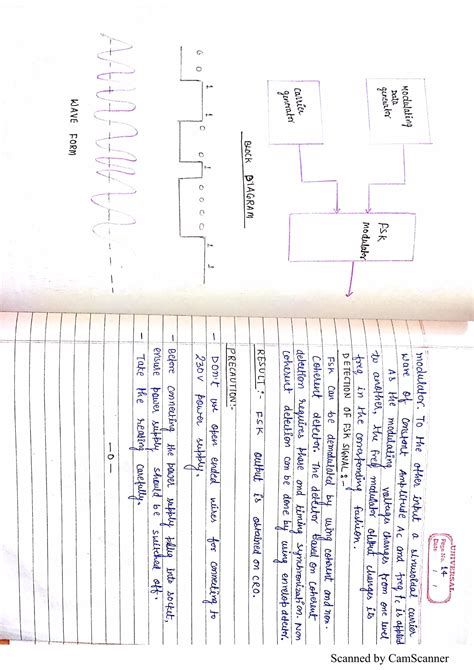 modulating
data
generator
carrier
generator
FSK
modulator
BLOCK DIAGRAM
WAVE FORM
UNIVERSAL
Page No. 54
Date / /
modulator. To the other input a sinusoidal carrier
wave of constant Amplitude Ac and freq fc is applied
As the modulating voltages changes from one level
to another, the freq modulator output changes its
freq in the corresponding fashion.
DETECTION OF FSK SIGNAL :-
FSK can be demodulated by using coherent and non-
Coherent detector. The detector based on coherent
detection requires phase and timing synchronization. Non
coherent detection can be done by using envelop detector.
RESULT :- FSK output is obtained on CRO.
PRECAUTION:-
- Don't use open ended wires for connecting to
230 V power supply.
- Before connecting the power supply plug into socket,
ensure power supply should be switched off.
- Take the reading carefully.
—0—
Scanned by CamScanner